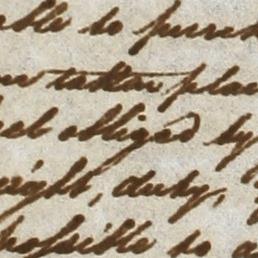 able to purch
taken plac
feel obliged by
right, duty,
possible to a